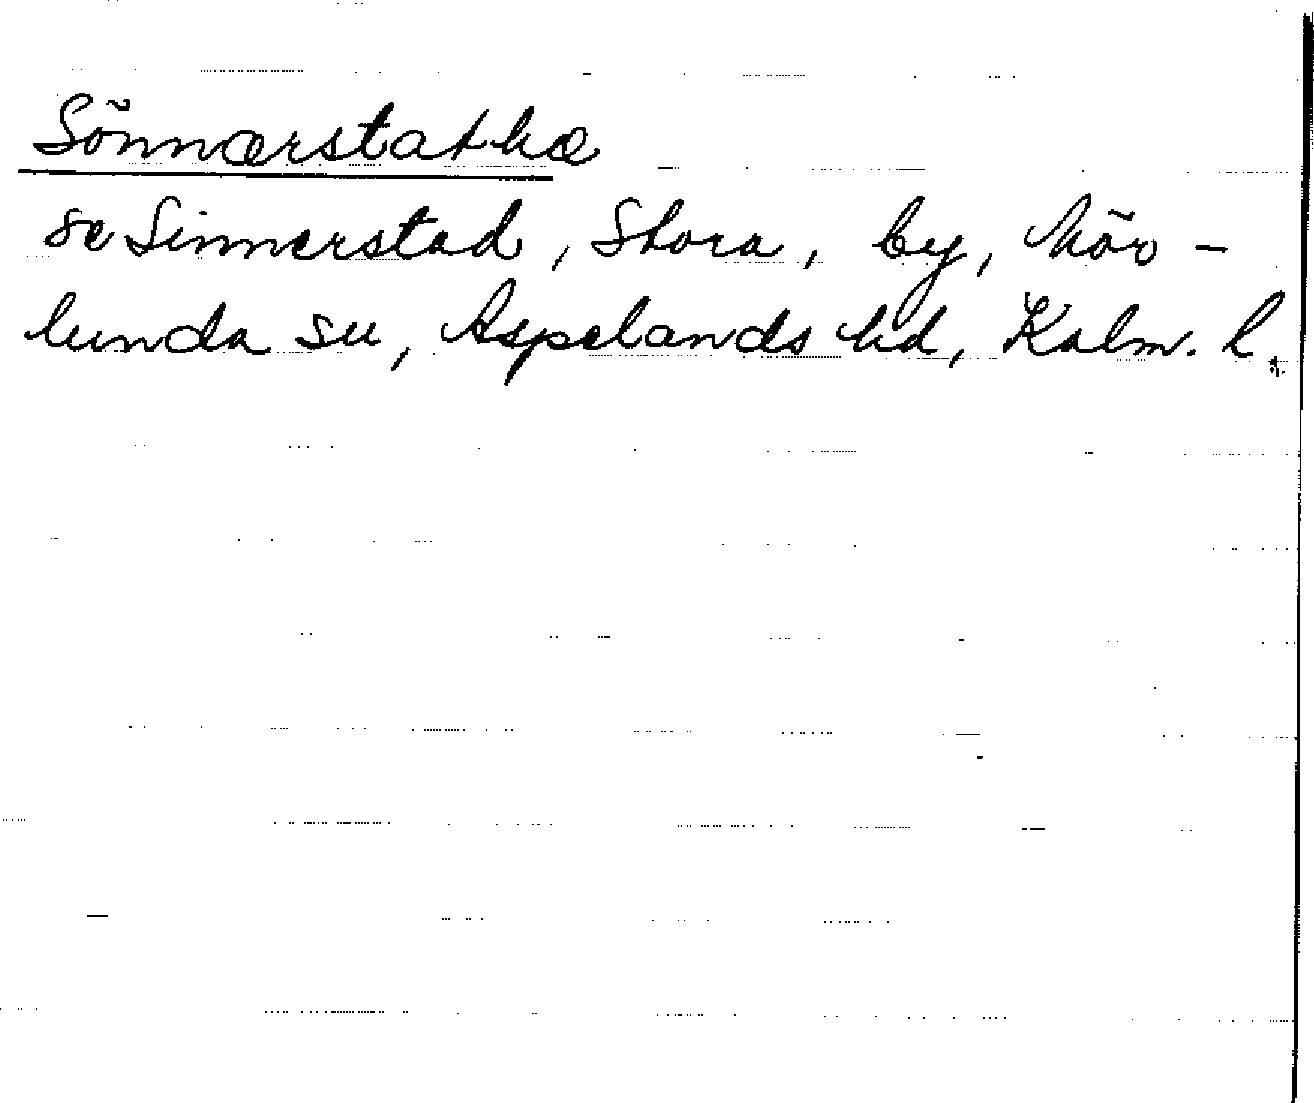 Sönnærstathæ
se Sinnerstad, Stora, by, Mör-
lunda sn, Aspelands hd, Kalm. l.